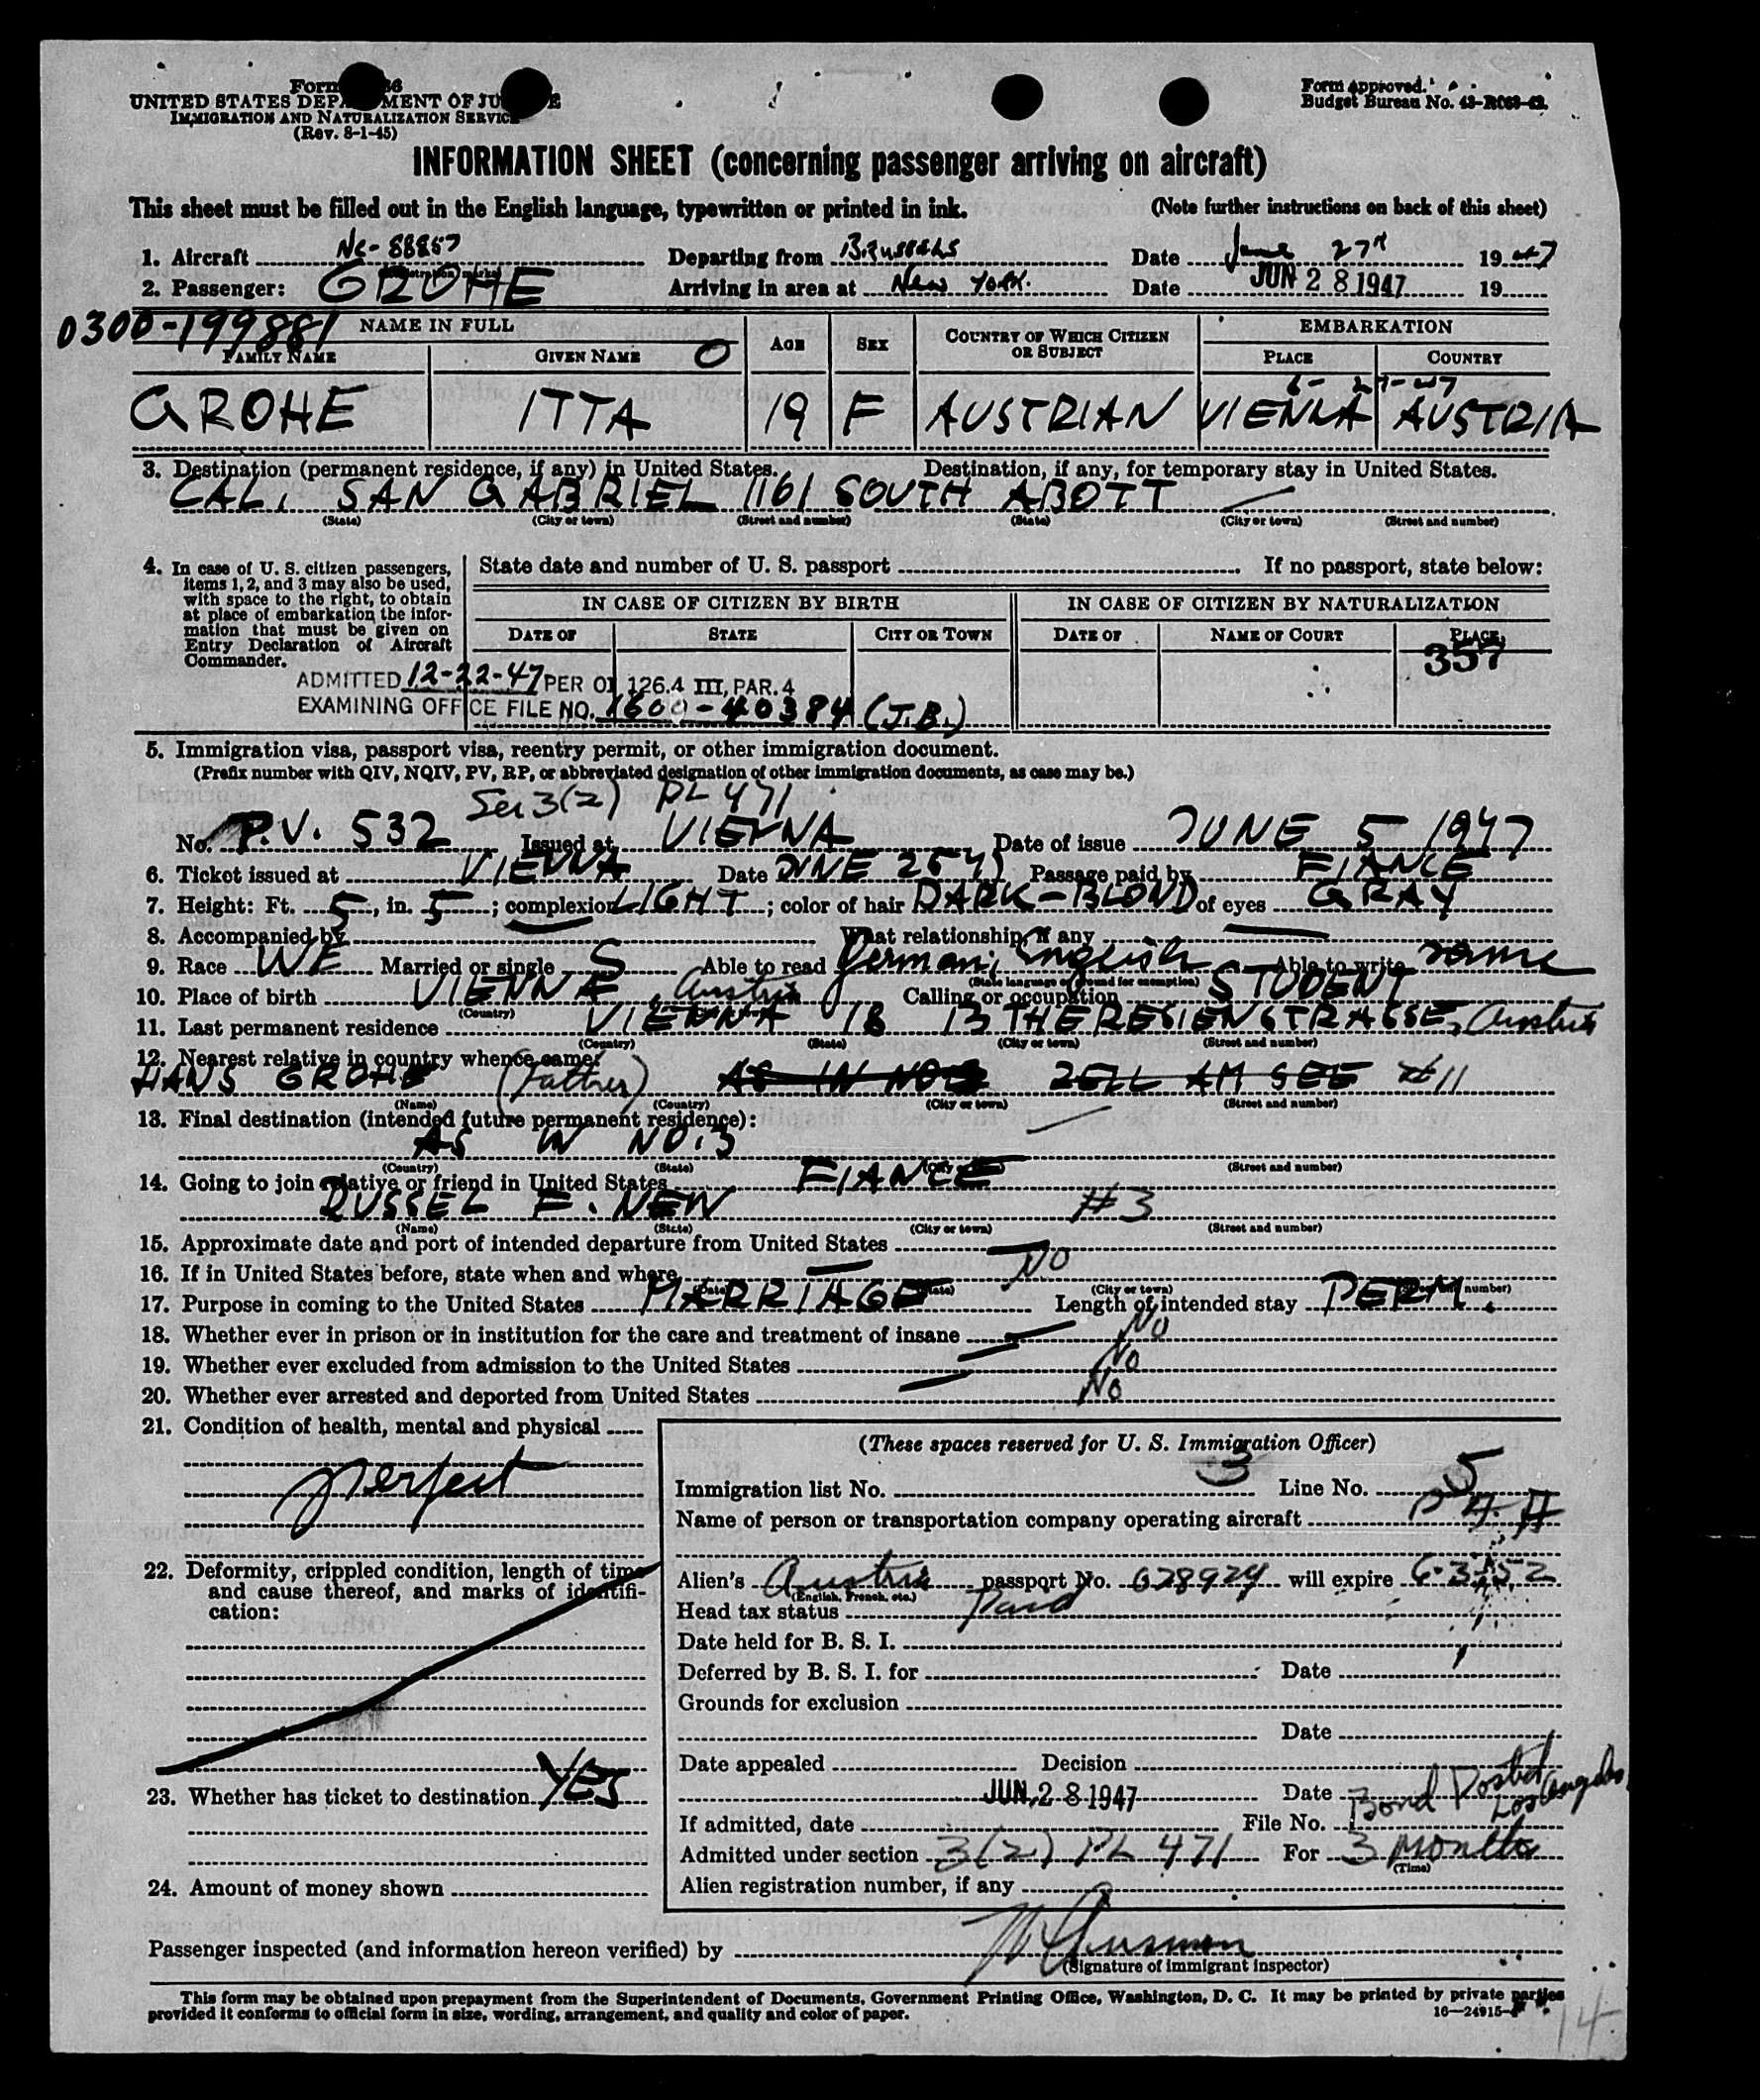 Form 36
UNITED STATES DEPA MENT OF JU E
IMMIGRATION AND NATURALIZATION SERVICE
(Rev. 8-1-45)
Form approved.
Budget Bureau No. 43-R063-42.
INFORMATION SHEET (concerning passenger arriving on aircraft)
This sheet must be filled out in the English language, typewritten or printed in ink. (Note further instructions on back of this sheet)
1. Aircraft NC-88857 Departing from Brussels Date June 27th 1947
2. Passenger: GROHE Arriving in area at New York. Date JUN 28 1947 19
0300-199881 NAME IN FULL AGE SEX COUNTRY OF WHICH CITIZEN OR SUBJECT EMBARKATION
FAMILY NAME GIVEN NAME O PLACE COUNTRY
6-27-47
GROHE ITTA 19 F AUSTRIAN VIENNA AUSTRIA
3. Destination (permanent residence, if any) in United States. Destination, if any, for temporary stay in United States.
CAL. SAN GABRIEL 1161 SOUTH ABOTT
(State) (City or town) (Street and number) (State) (City or town) (Street and number)
4. In case of U. S. citizen passengers, items 1, 2, and 3 may also be used, with space to the right, to obtain at place of embarkation the information that must be given on Entry Declaration of Aircraft Commander.
State date and number of U. S. passport If no passport, state below:
IN CASE OF CITIZEN BY BIRTH IN CASE OF CITIZEN BY NATURALIZATION
DATE OF STATE CITY OR TOWN DATE OF NAME OF COURT PLACE
357
ADMITTED 12-22-47 PER OI 126.4 III, PAR. 4
EXAMINING OFFICE FILE NO. 1600-40384 (J.B.)
5. Immigration visa, passport visa, reentry permit, or other immigration document.
(Prefix number with QIV, NQIV, PV, RP, or abbreviated designation of other immigration documents, as case may be.)
Sec 3(2) PL 471
No. P.V. 532 Issued at VIENNA Date of issue JUNE 5 1947
6. Ticket issued at VIENNA Date JUNE 25 47 Passage paid by FIANCE
7. Height: Ft. 5, in. 5; complexion LIGHT; color of hair DARK-BLOND of eyes GRAY
8. Accompanied by What relationship, if any
9. Race WE Married or single S Able to read German, English Able to write same
(State language or ground for exemption)
10. Place of birth VIENNA, Austria Calling or occupation STUDENT
(Country)
11. Last permanent residence VIENNA 18 13 THERESIENSTRASSE, Austria
(Country) (State) (City or town) (Street and number)
12. Nearest relative in country whence came:
HANS GROHE (Father) AS IN NO 3 ZELL AM SEE #11
(Name) (Country) (City or town) (Street and number)
13. Final destination (intended future permanent residence):
AS IN NO. 3
(Country) (State) (City or town) (Street and number)
14. Going to join relative or friend in United States FIANCE
RUSSEL F. NEW #3
(Name) (State) (City or town) (Street and number)
15. Approximate date and port of intended departure from United States
16. If in United States before, state when and where NO
(Date) (State) (City or town) (Street and number)
17. Purpose in coming to the United States MARRIAGE Length of intended stay PERM.
18. Whether ever in prison or in institution for the care and treatment of insane No
19. Whether ever excluded from admission to the United States No
20. Whether ever arrested and deported from United States No
21. Condition of health, mental and physical
perfect
22. Deformity, crippled condition, length of time and cause thereof, and marks of identification:
23. Whether has ticket to destination YES
24. Amount of money shown
(These spaces reserved for U. S. Immigration Officer)
Immigration list No. 3 Line No. 5
Name of person or transportation company operating aircraft P A A
Alien's Austria passport No. 028924 will expire 6-3-52
(English, French, etc.)
Head tax status Paid
Date held for B. S. I.
Deferred by B. S. I. for Date
Grounds for exclusion
Date
Date appealed Decision
JUN 28 1947 Date Bond Posted Los Angeles
If admitted, date File No.
Admitted under section 3(2) PL 471 For 3 Months
(Time)
Alien registration number, if any
Passenger inspected (and information hereon verified) by
(Signature of immigrant inspector)
This form may be obtained upon prepayment from the Superintendent of Documents, Government Printing Office, Washington, D. C. It may be printed by private parties
provided it conforms to official form in size, wording, arrangement, and quality and color of paper. 16—24915-
14